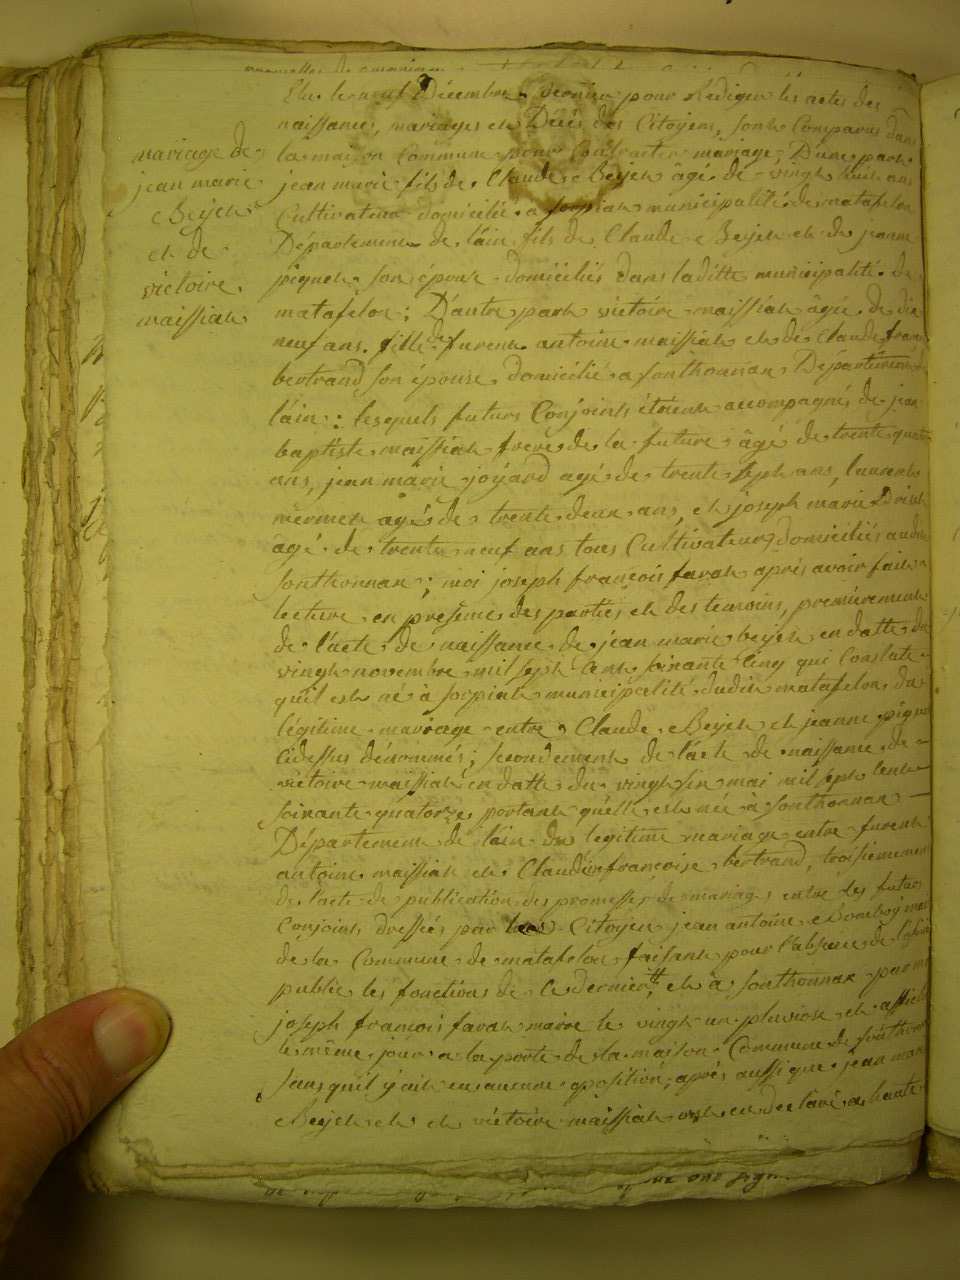 promesses de mariage
Elu le neuf Décembre dernier pour Rediger les actes des
naissance, mariages et Décès des Citoyens, sont Comparus dans
la maison Commune pour Contracter mariage, D'une part
jean marie fils de Claude Beijet âgé de vingt huit ans
Cultivateur domicilié a sorpiat municipalité de matafelon
Département de l'ain fils de Claude Beijet et de jeanne
piquet son épouse domiciliés dans laditte municipalité de
matafelon ; D'autre part victoire maissiat âgée de dix
neuf ans fille de furent antoine maissiat et de Claude fran
bertrand son épouse domicilié a sonthonnax Département
l'ain : lesquels futurs Conjoints étoient accompagnés de jean
baptiste maissiat frere de la future âgé de trente quatre
ans, jean marie joyard agé de trente sept ans, laurent
mermet agé de trente deux ans, et joseph marie
âgé de trente neuf ans tous Cultivateurs domiciliés audit
sonthonnax ; moi joseph françois favat après avoir fait
lecture en presence des parties et des temoins, premièrement
de l'acte de naissance de jean marie beijet en datte du
vingt novembre mil sept Cent soixante Cinq qui Constate
qu'il est né à sorpiat municipalité dudit matafelon du
légitime mariage entre Claude Beijet et jeanne piquet
Cidessus dénommés ; secondement de l'acte de naissance de
victoire maissiat en datte du vingt six mai mil sept Cent
soixante quatorze portant qu'elle est née a sonthonnax
Département de l'ain du legitime mariage entre furent
antoine maissiat et Claudine françoise bertrand, troisiement
de l'acte de publication des promesses de mariage entre les futurs
Conjoints dressés par le Citoyen jean antoine
de la Commune de matafelon faisant pour l'absence de l'officier
public les fonctions de Ce dernier, et à sonthonnax par moi
joseph françois favat maire le vingt un pluviose et affiché
le même jour a la porte de la maison Commune de sonthonnax
sans qu'il y ait eu aucune oposition, après aussi que jean marie
Beijet et et victoire maissiat ont eu declaré a haute
mariage de
jean marie
Beijet
et de
victoire
maissiat